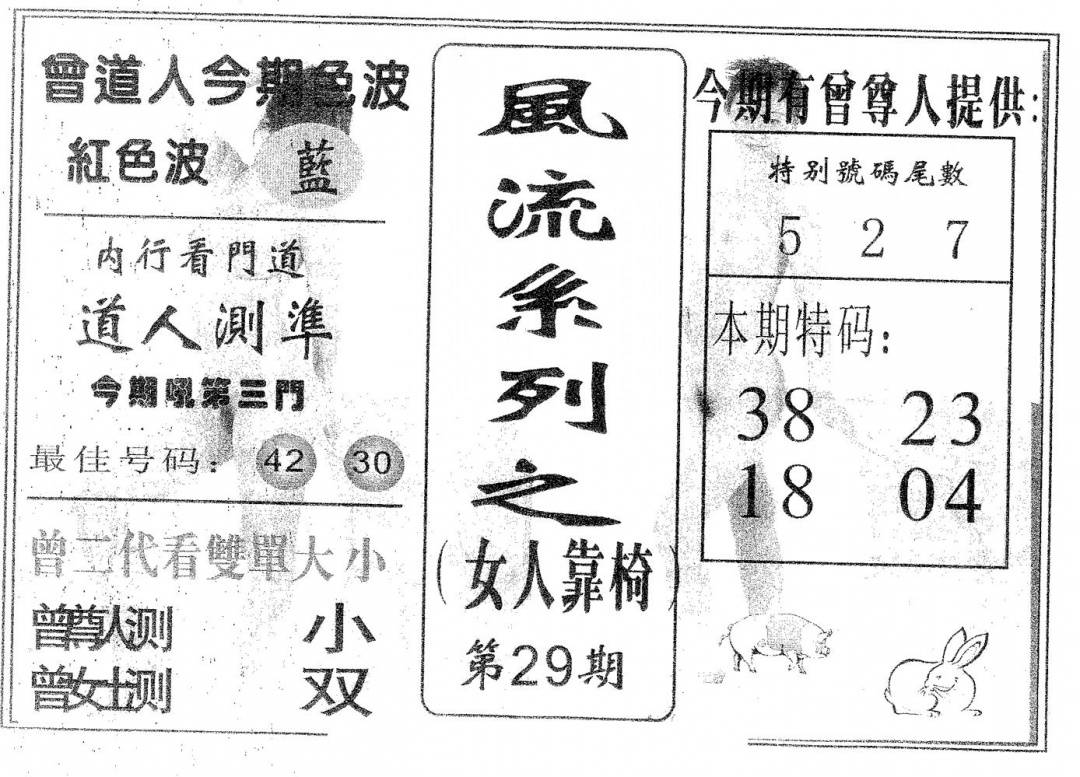 曾道人今期色波
紅色波 藍
内行看門道
道人測準
今期吼第三門
最佳号码：42 30
曾二代看雙單大小
曾尊人测 小
曾女士测 双
風流系列之
（女人靠椅）
第29期
今期有曾尊人提供：
特别號碼尾數
5 2 7
本期特码：
38 23
18 04